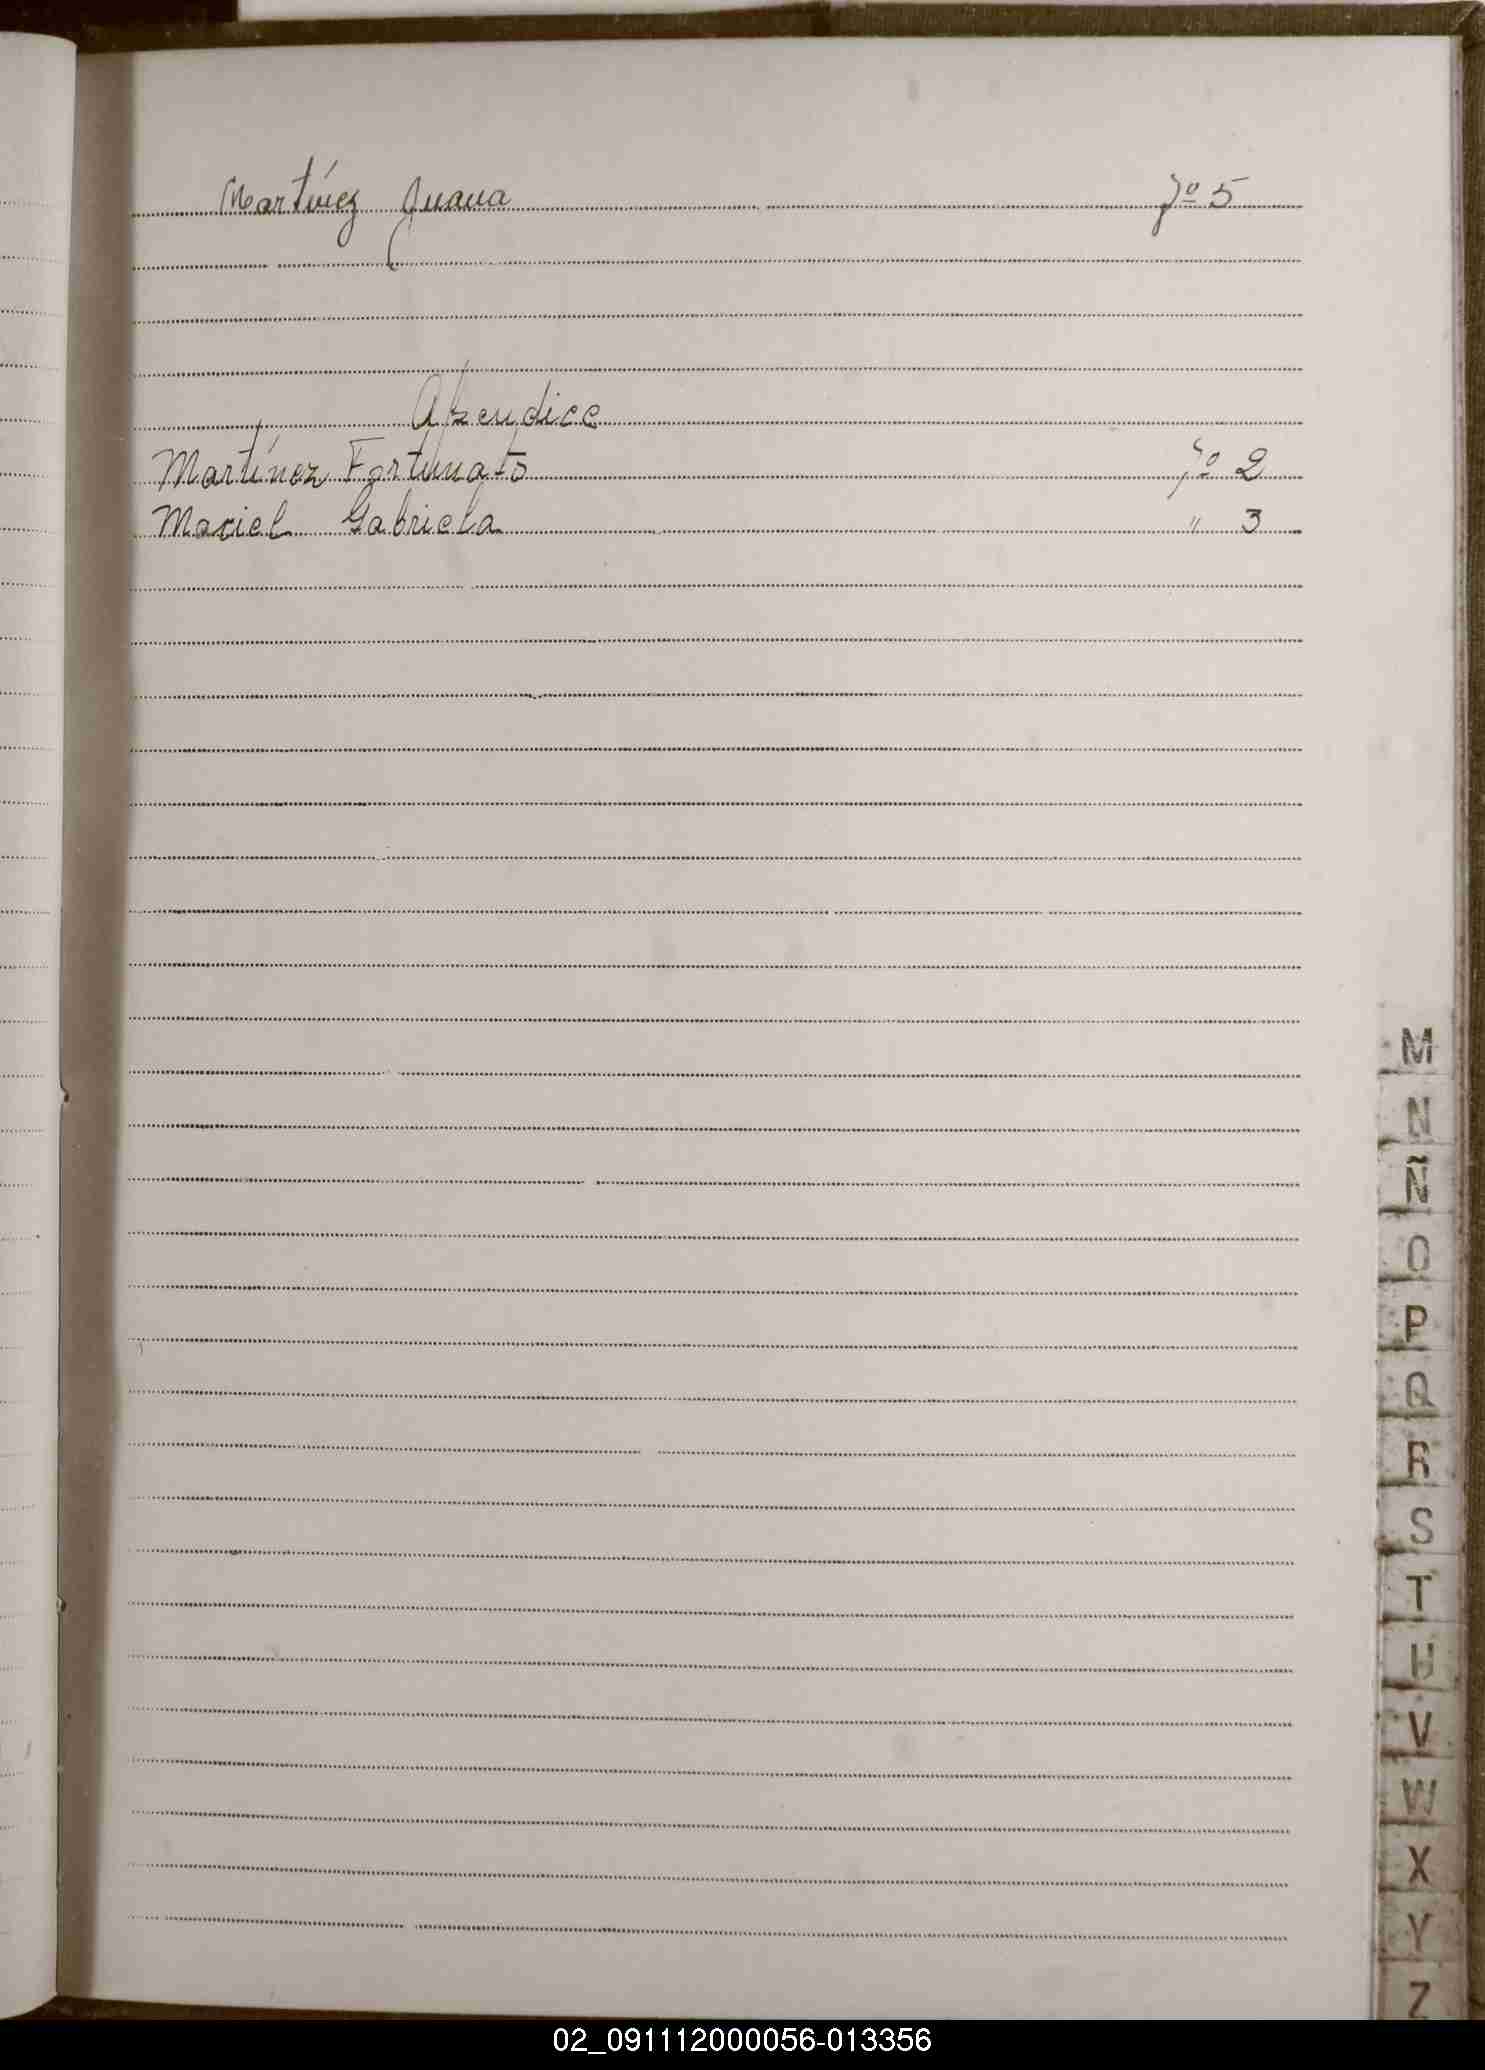 Martínez Juana fº 5
Apendice
Martínez Fortunato fº 2
Maciel Gabriela " 3
M
N
Ñ
O
P
Q
R
S
T
U
V
W
X
Y
Z
02_091112000056-013356